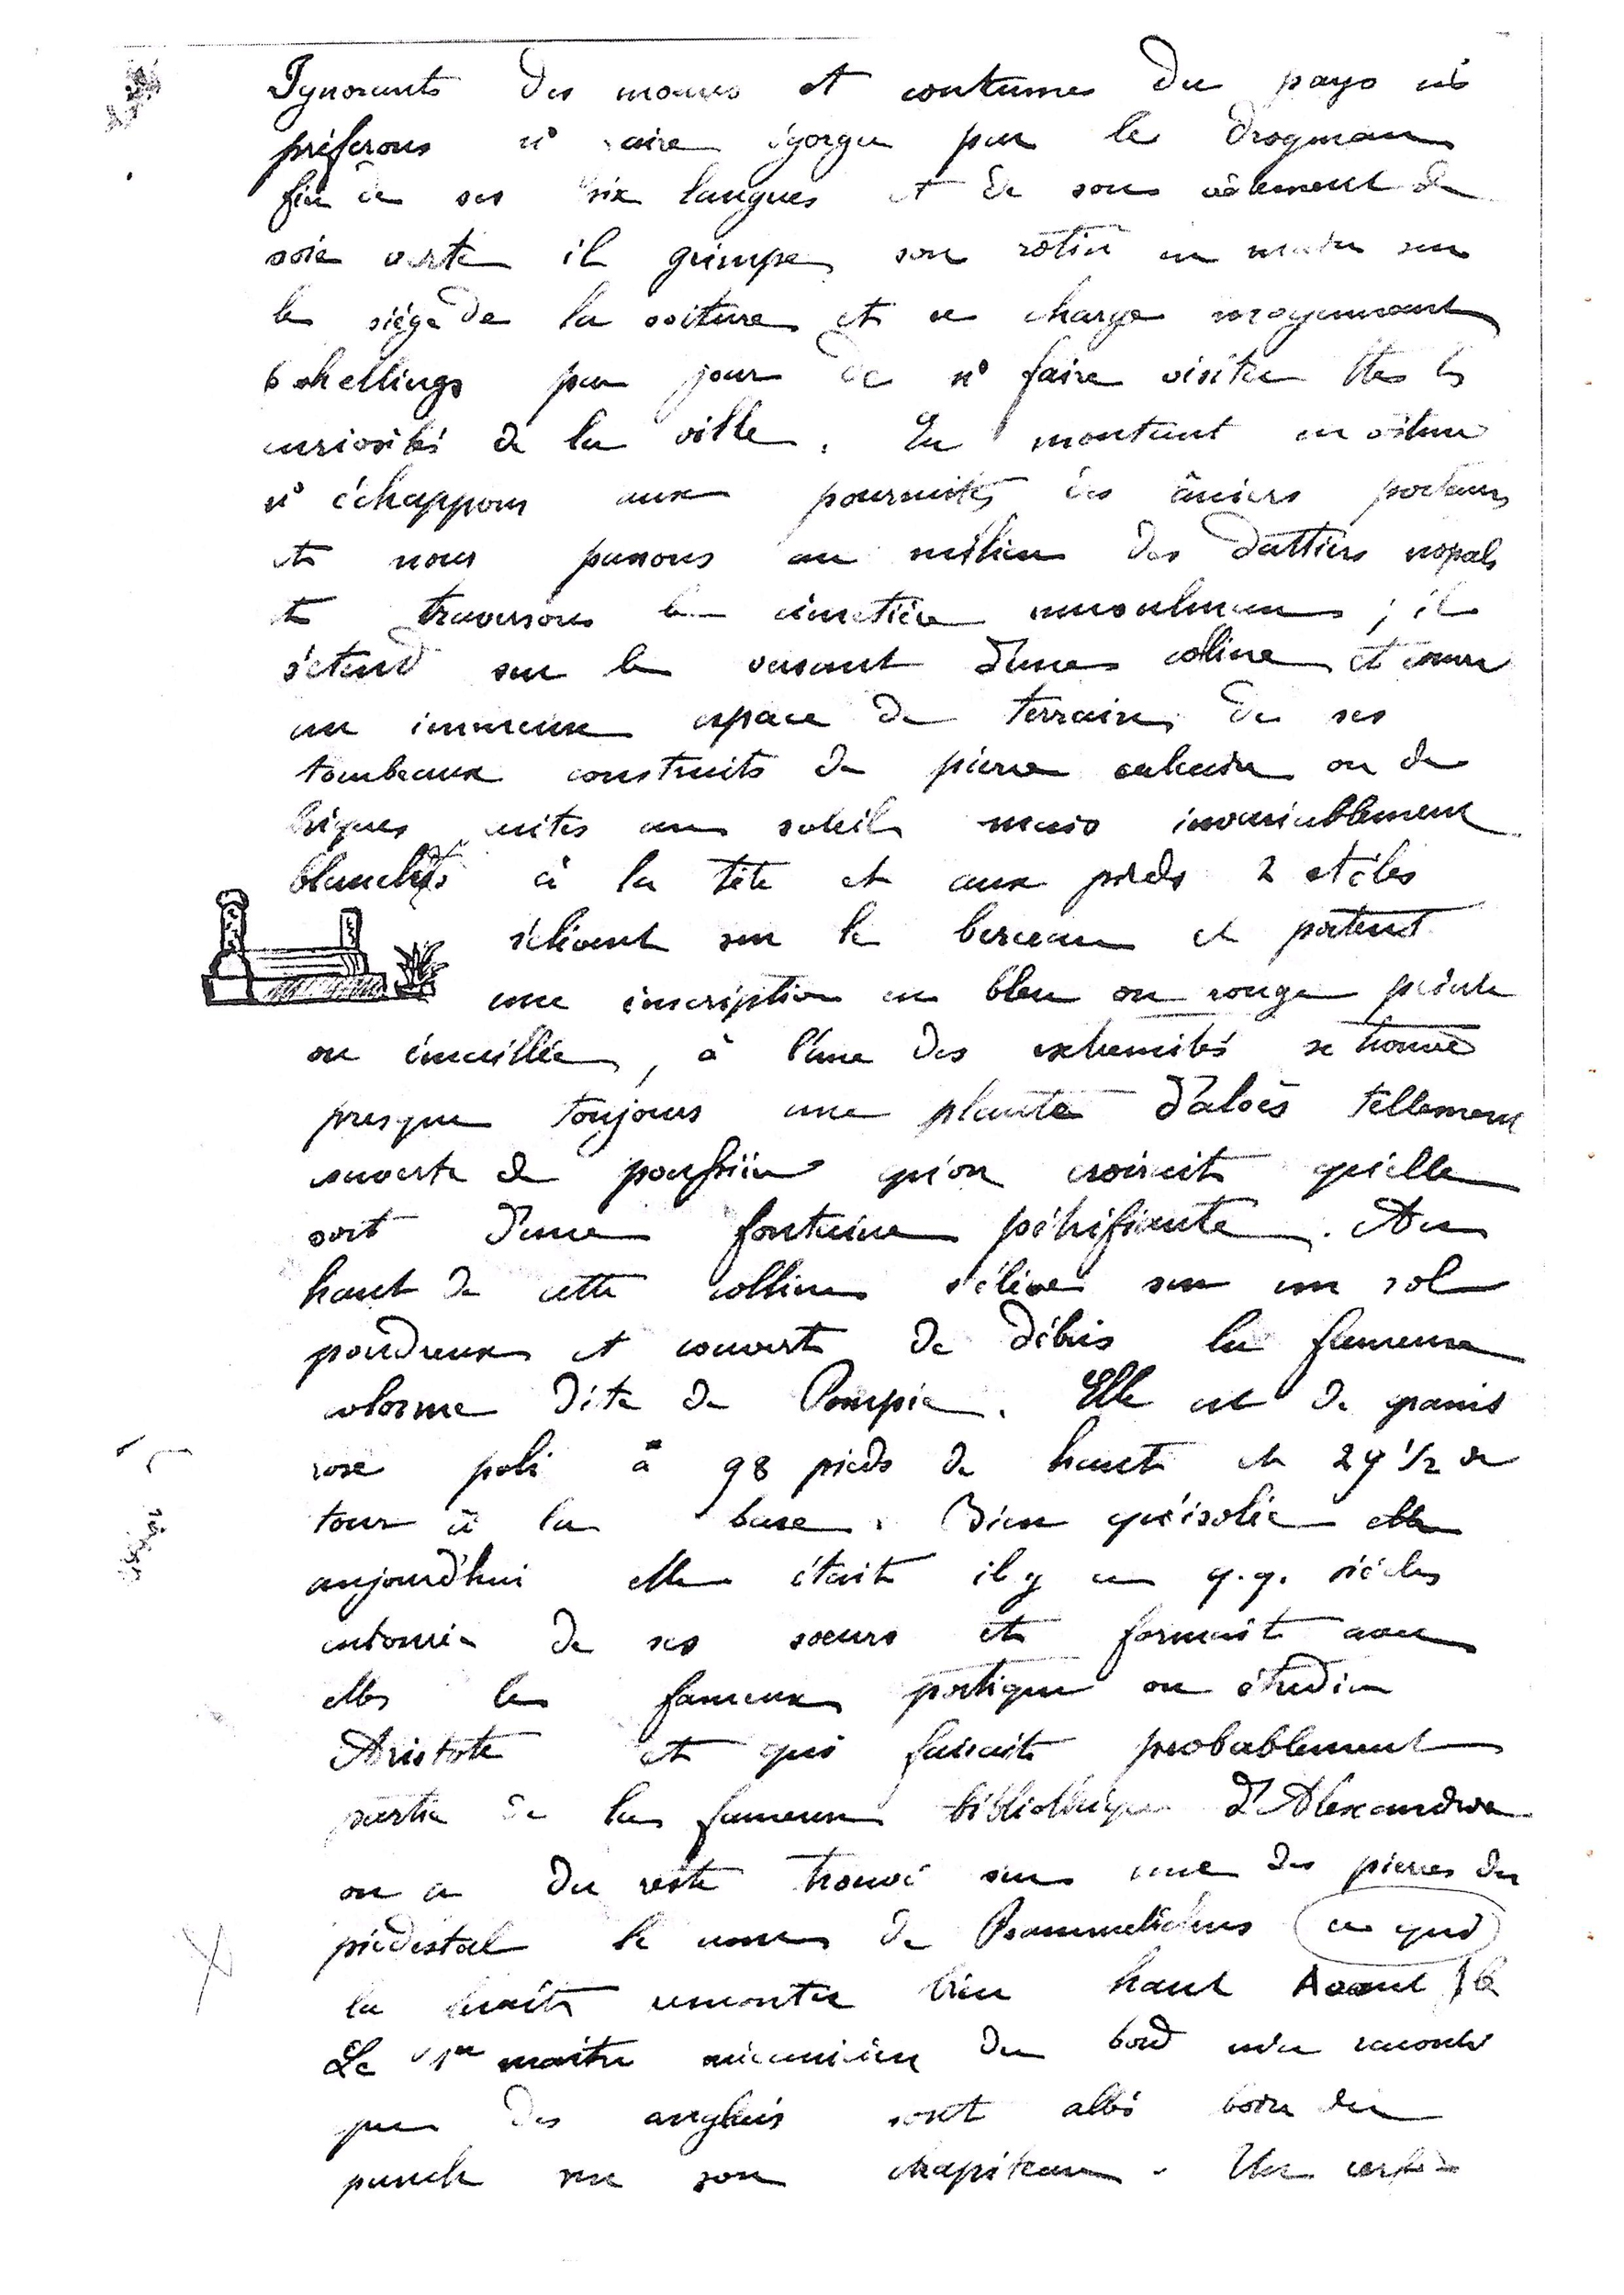 Ignorants des mœurs et coutumes du pays ns
préferons ns faire égorger par le drogman
fier de ses six langues et de son vêtement de
soie verte il grimpe son rotin en main sur
le siége de la voiture et se charge moyennant
6 shellings par jour de ns faire visiter ttes les
curiosités de la ville. En montant en voiture
ns échappons aux poursuites des âniers porteurs
et nous passons au milieu des dattiers nopals
et traversons le cimetière musulman ; il
s'étend sur le versant d'une colline et couvre
un immense espace de terrain, de ses
tombeaux construits de pierre calcaire ou de
briques cuites au soleil mais invariablement
blanchis à la tête et aux pieds 2 stèles
s'élèvent sur le berceau et portent
une inscription en bleu ou rouge peinte
ou émaillée, à l'une des extremités se trouve
presque toujours une plante d'aloès tellement
couverte de poussière qu'on croirait qu'elle
sort d'une fontaine pétrifiante. Au
haut de cette colline s'élève sur un sol
poudreux et couvert de débris la fameuse
colonne dite de Pompée. Elle est de granit
rose poli à 98 pieds de haut et 29 1/2 de
tour à la base. Bien qu'isolée elle
aujourd'hui elle était il y a q.q. siècles
entourée de ses sœurs et formait avec
elles le fameux portique ou étudia
Aristote et qui faisait probablement
partie de la fameuse bibliothèque d'Alexandrie
on a du reste trouvé sur une des pierres du
piédestal le nom de Psammetichus ce qui
la ferait remonter bien haut Avant JC
Le 1er maitre mécanicien du bord m'a raconté
que des anglais sont allés boire du
punch sur son chapiteau. Un certain